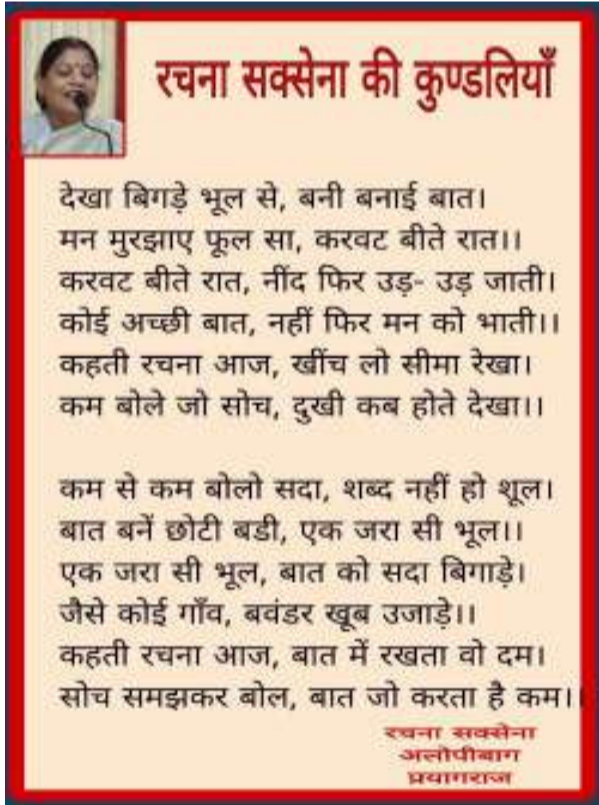 रचना सक्सेना की कुण्डलियाँ
देखा बिगड़े भूल से, बनी बनाई बात।
मन मुरझाए फूल सा, करवट बीते रात।।
करवट बीते रात, नींद फिर उड़- उड़ जाती।
कोई अच्छी बात, नहीं फिर मन को भाती।।
कहती रचना आज, खींच लो सीमा रेखा।
कम बोले जो सोच, दुखी कब होते देखा।।
कम से कम बोलो सदा, शब्द नहीं हो शूल।
बात बनें छोटी बडी, एक जरा सी भूल।।
एक जरा सी भूल, बात को सदा बिगाड़े।
जैसे कोई गाँव, बवंडर खूब उजाड़े।।
कहती रचना आज, बात में रखता वो दम।
सोच समझकर बोल, बात जो करता है कम।।
रचना सक्सेना
अलोपीबाग
प्रयागराज